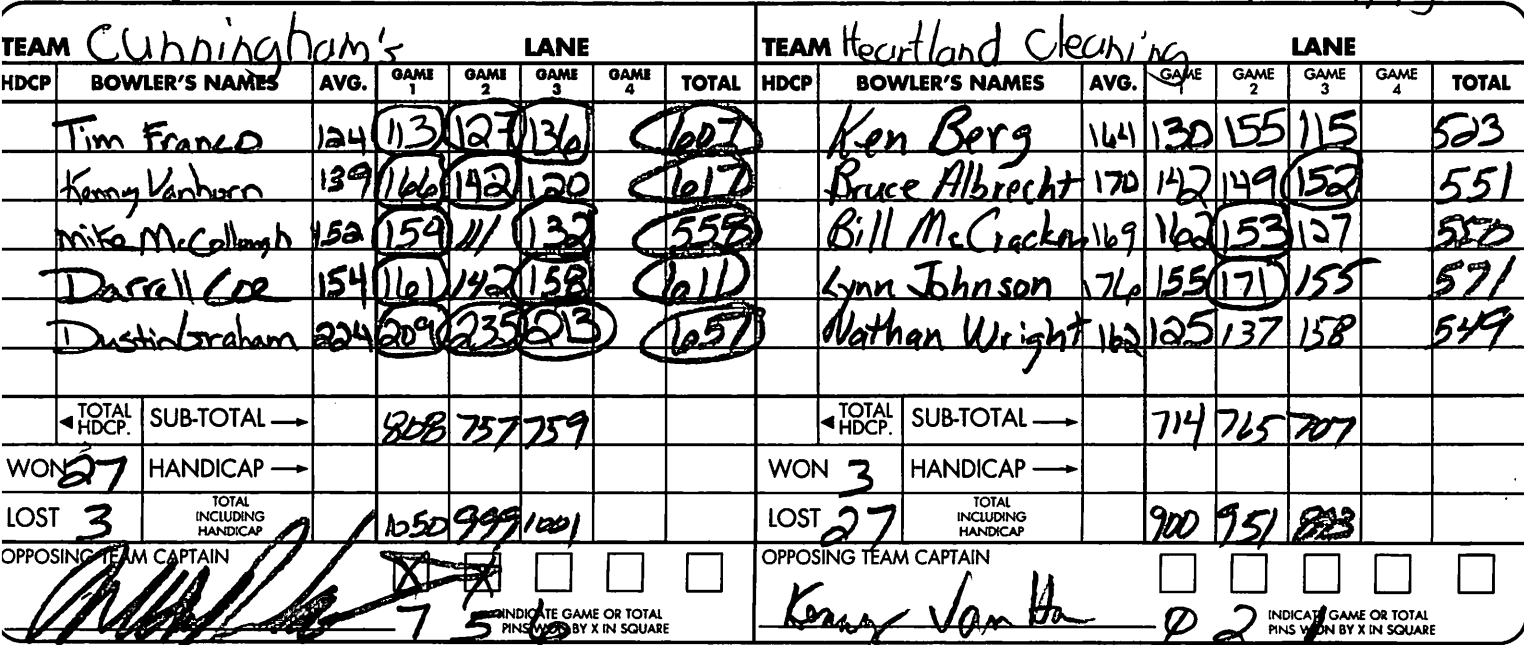 TEAM Cunningham's LANE
HDCP BOWLER'S NAMES AVG. GAME 1 GAME 2 GAME 3 GAME 4 TOTAL
Tim Franco 124 113 127 136 607
Kenny Vanhorn 139 166 142 120 617
Mike McCollough 152 159 111 132 558
Darrell Coe 154 161 142 158 611
Dustin Graham 224 209 235 213 657
◄ TOTAL HDCP. SUB-TOTAL → 808 757 759
WON 27 HANDICAP →
LOST 3 TOTAL INCLUDING HANDICAP 1050 999 1001
OPPOSING TEAM CAPTAIN X X
7 5 6 INDICATE GAME OR TOTAL
PINS WON BY X IN SQUARE
TEAM Heartland Cleaning LANE
HDCP BOWLER'S NAMES AVG. GAME 1 GAME 2 GAME 3 GAME 4 TOTAL
Ken Berg 164 130 155 115 523
Bruce Albrecht 170 142 149 152 551
Bill McCracken 169 162 153 127 550
Lynn Johnson 176 155 171 155 571
Nathan Wright 162 125 137 158 549
◄ TOTAL HDCP. SUB-TOTAL → 714 765 707
WON 3 HANDICAP →
LOST 27 TOTAL INCLUDING HANDICAP 900 951 893
OPPOSING TEAM CAPTAIN
Kenny Van Hn 0 2 1 INDICATE GAME OR TOTAL
PINS WON BY X IN SQUARE